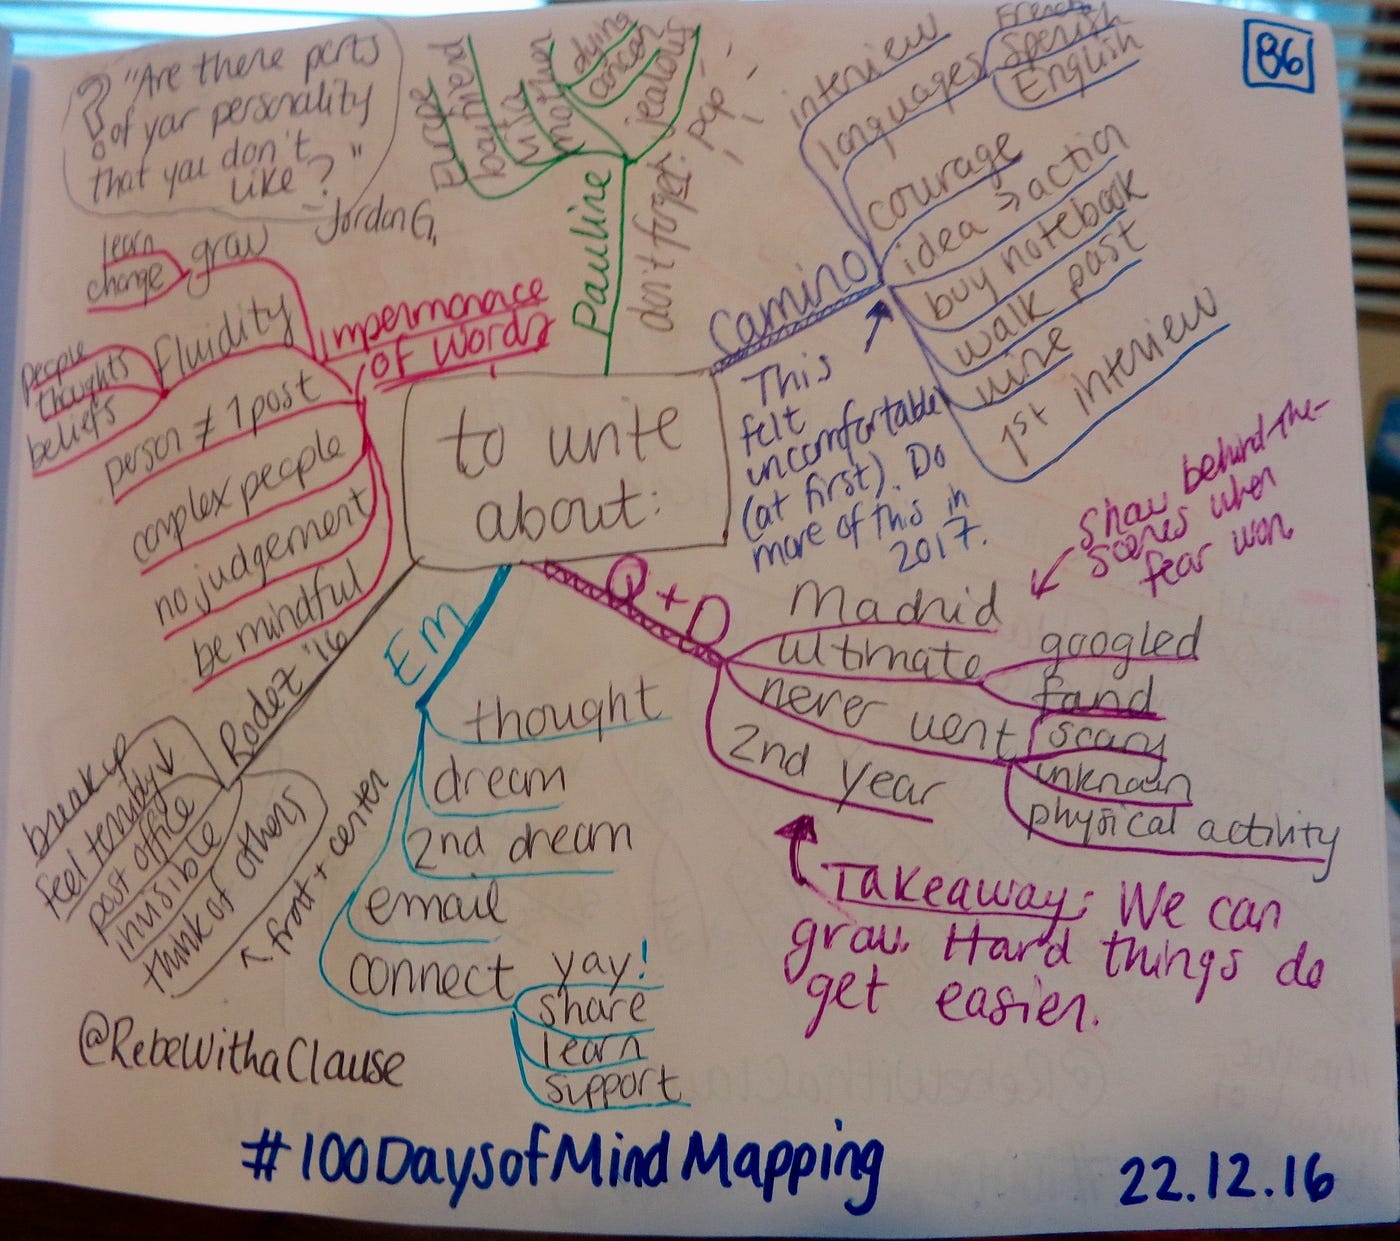 86
? "Are there parts
of your personality
that you don't
like?"
- Jordan G.
to write
about:
Pauline
Europe
boulversed
vita
mother
dying
cancer
jealous
don't forget: pop
Camino
interview
languages
French
Spanish
English
courage
idea → action
buy notebook
walk past
wine
1st interview
This
felt
uncomfortable
(at first). Do
more of this in
2017.
Q + D
Madrid
ultimate
googled
fand
never went
scary
unknown
physical activity
2nd year
show behind-the-
scenes when
fear won
Takeaway: We can
grow. Hard things do
get easier.
Em
thought
dream
2nd dream
email
connect
yay!
share
learn
support
Rodez '16
breakup
feel terribly ↓
post office
invisible
think of others
← front + center
Impermanace
of Words
grow
learn
change
fluidity
people
thoughts
beliefs
person ≠ 1 post
complex people
no judgement
be mindful
@RebeWithaClause
#100DaysofMindMapping
22.12.16